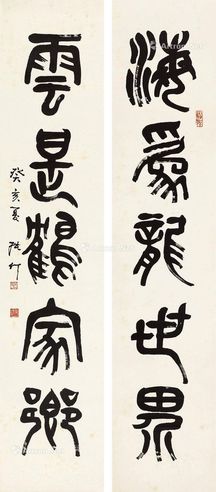 海為龍世界
雲是鶴家鄉
癸亥夏